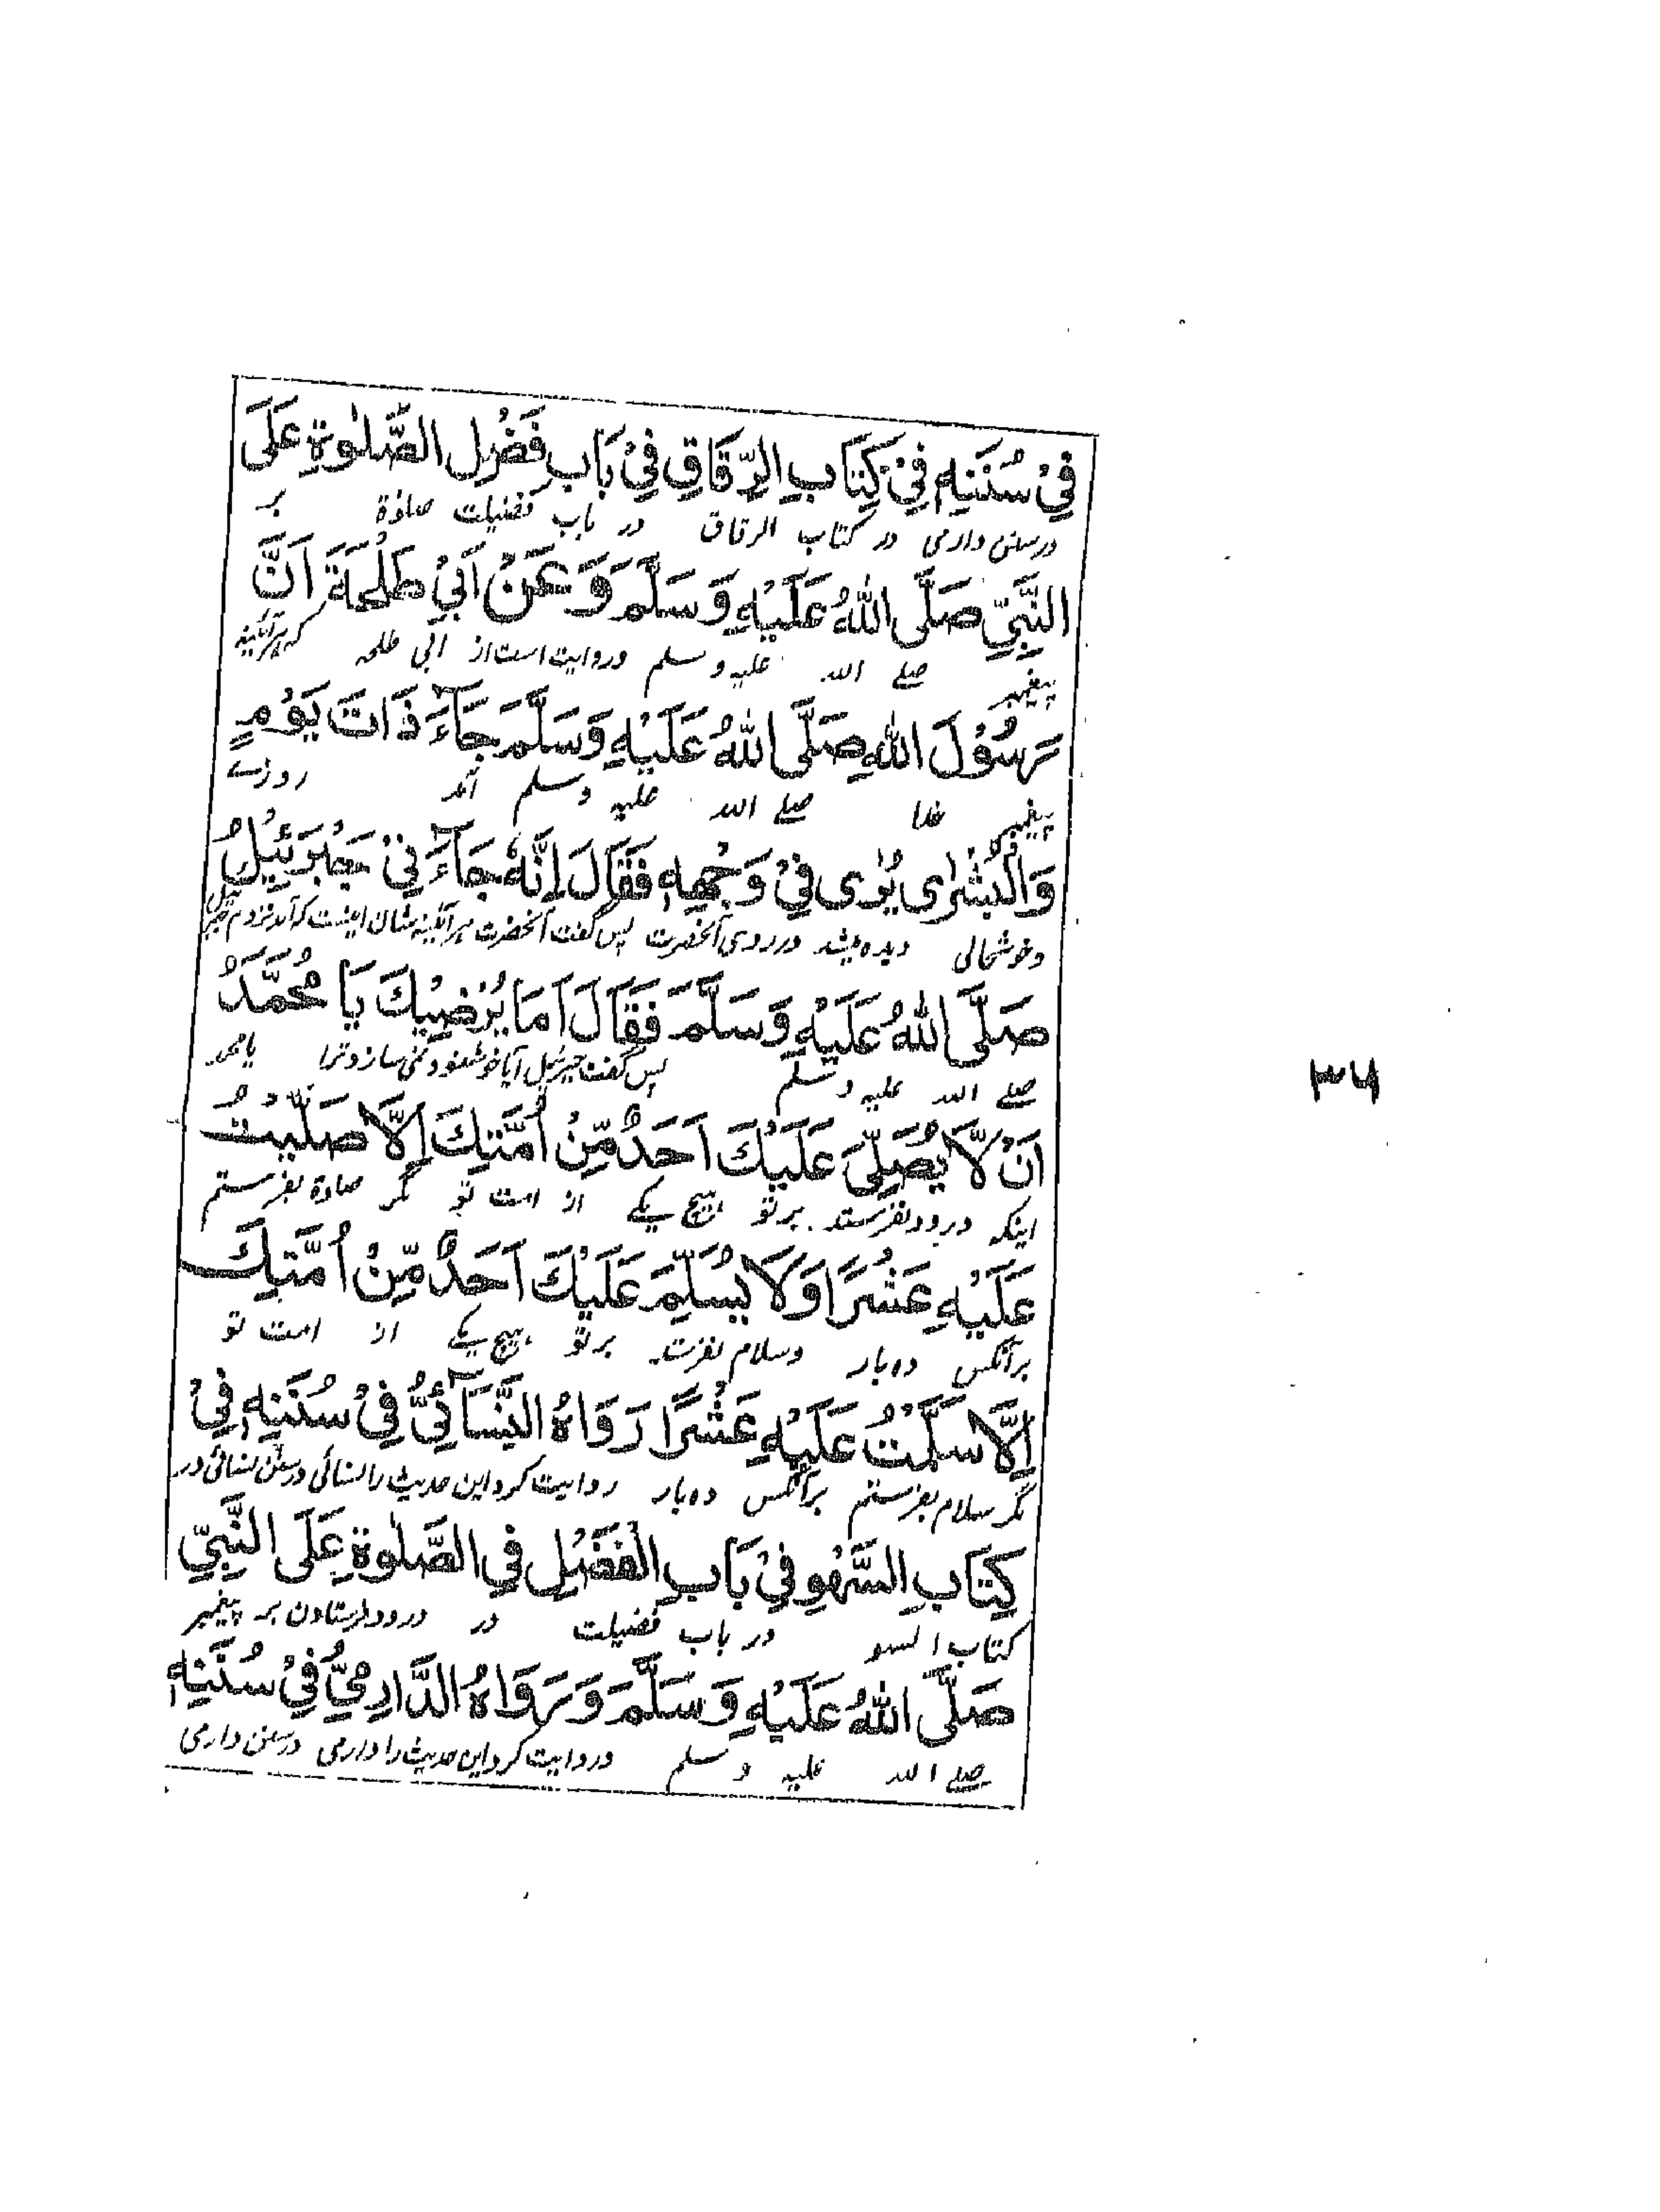 فِيْ سُنَنِهٖ فِيْ كِتَابِ الرِّقَاقِ فِيْ بَابِ فَضْلِ الصَّلٰوةِ عَلَى
در سنن دارمی در کتاب الرقاق در باب فضیلت صلوٰة بر
النَّبِيِّ صَلَّى اللّٰهُ عَلَيْهِ وَسَلَّمَ وَعَنْ اَبِيْ طَلْحَةَ اَنَّ
پیغمبر صلے اللہ علیہ وسلم و روایت است از ابی طلحہ کہ ہر آئینہ
رَسُوْلَ اللّٰهِ صَلَّى اللّٰهُ عَلَيْهِ وَسَلَّمَ جَآءَ ذَاتَ يَوْمٍ
پیغمبر خدا صلے اللہ علیہ وسلم آمد روزے
وَالْبُشْرٰى يُرٰى فِيْ وَجْهِهٖ فَقَالَ اِنَّهٗ جَآءَنِيْ جَبْرَئِيْلُ
و خوشحالی دیدہ میشد در روی آنحضرت پس گفت آنحضرت ہر آئینہ شان اینست کہ آمد نزدم جبرئیل
صَلَّى اللّٰهُ عَلَيْهِ وَسَلَّمَ فَقَالَ اَمَا يُرْضِيْكَ يَا مُحَمَّدُ
صلے اللہ علیہ وسلم پس گفت جبرئیل آیا خوشنود نمی سازد ترا یا محمد
اَنْ لَّا يُصَلِّيَ عَلَيْكَ اَحَدٌ مِّنْ اُمَّتِكَ اِلَّا صَلَّيْتُ
اینکہ درود نفرستد بر تو ہیچ یکے از امت تو مگر صلوٰة بفرستم
عَلَيْهِ عَشْرًا وَلَا يُسَلِّمَ عَلَيْكَ اَحَدٌ مِّنْ اُمَّتِكَ
بر آنکس دہ بار و سلام نفرستد بر تو ہیچ یکے از امت تو
اِلَّا سَلَّمْتُ عَلَيْهِ عَشْرًا رَوَاهُ النَّسَآئِيُّ فِيْ سُنَنِهٖ فِيْ
مگر سلام بفرستم بر آنکس دہ بار روایت کرد این حدیث را نسائی در سنن نسائی در
كِتَابِ السَّهْوِ فِيْ بَابِ الْفَضْلِ فِي الصَّلٰوةِ عَلَى النَّبِيِّ
کتاب السہو در باب فضیلت در درود فرستادن بر پیغمبر
صَلَّى اللّٰهُ عَلَيْهِ وَسَلَّمَ وَرَوَاهُ الدَّارِمِيُّ فِيْ سُنَنِهٖ
صلے اللہ علیہ وسلم و روایت کرد این حدیث را دارمی در سنن دارمی
۳۴